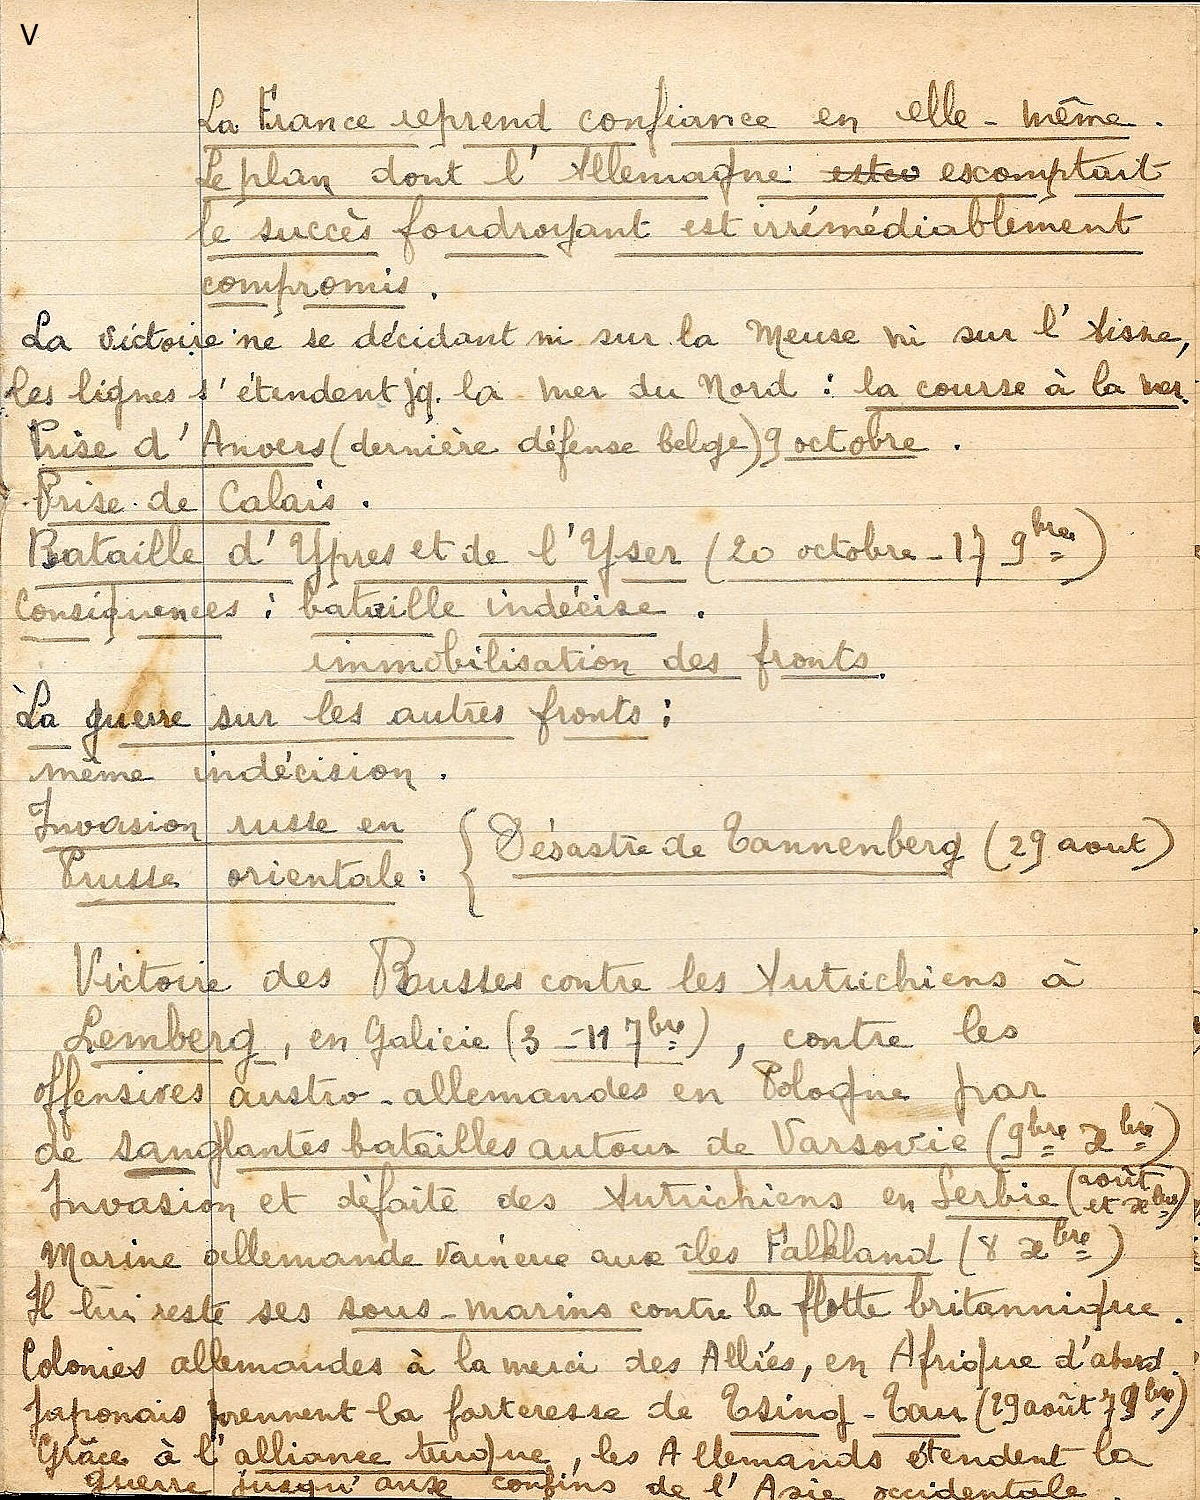 V
La France reprend confiance en elle-même.
Le plan dont l'Allemagne escomptait
le succès foudroyant est irrémédiablement
compromis.
La victoire ne se décidant ni sur la Meuse ni sur l'Aisne,
les lignes s'étendent jq. la mer du Nord : la course à la mer.
Prise d'Anvers (dernière défense belge) 9 octobre.
Prise de Calais.
Bataille d'Ypres et de l'Yser (20 octobre - 17 9bre)
Conséquences : bataille indécise.
immobilisation des fronts.
La guerre sur les autres fronts :
même indécision.
Invasion russe en
Prusse orientale : { Désastre de Tannenberg (29 aout)
Victoire des Russes contre les Autrichiens à
Lemberg, en Galicie (3 - 11 7bre), contre les
offensives austro-allemandes en Pologne par
de sanglantes batailles autour de Varsovie (9bre xbre)
Invasion et défaite des Autrichiens en Serbie (août et xbre)
Marine allemande vaincue aux îles Falkland (8 xbre)
Il lui reste ses sous-marins contre la flotte britannique.
Colonies allemandes à la merci des Alliés, en Afrique d'abord.
Japonais prennent la forteresse de Tsing-Tau (29 août 7 9bre)
Grâce à l'alliance turque, les Allemands étendent la
guerre jusqu'aux confins de l'Asie occidentale.